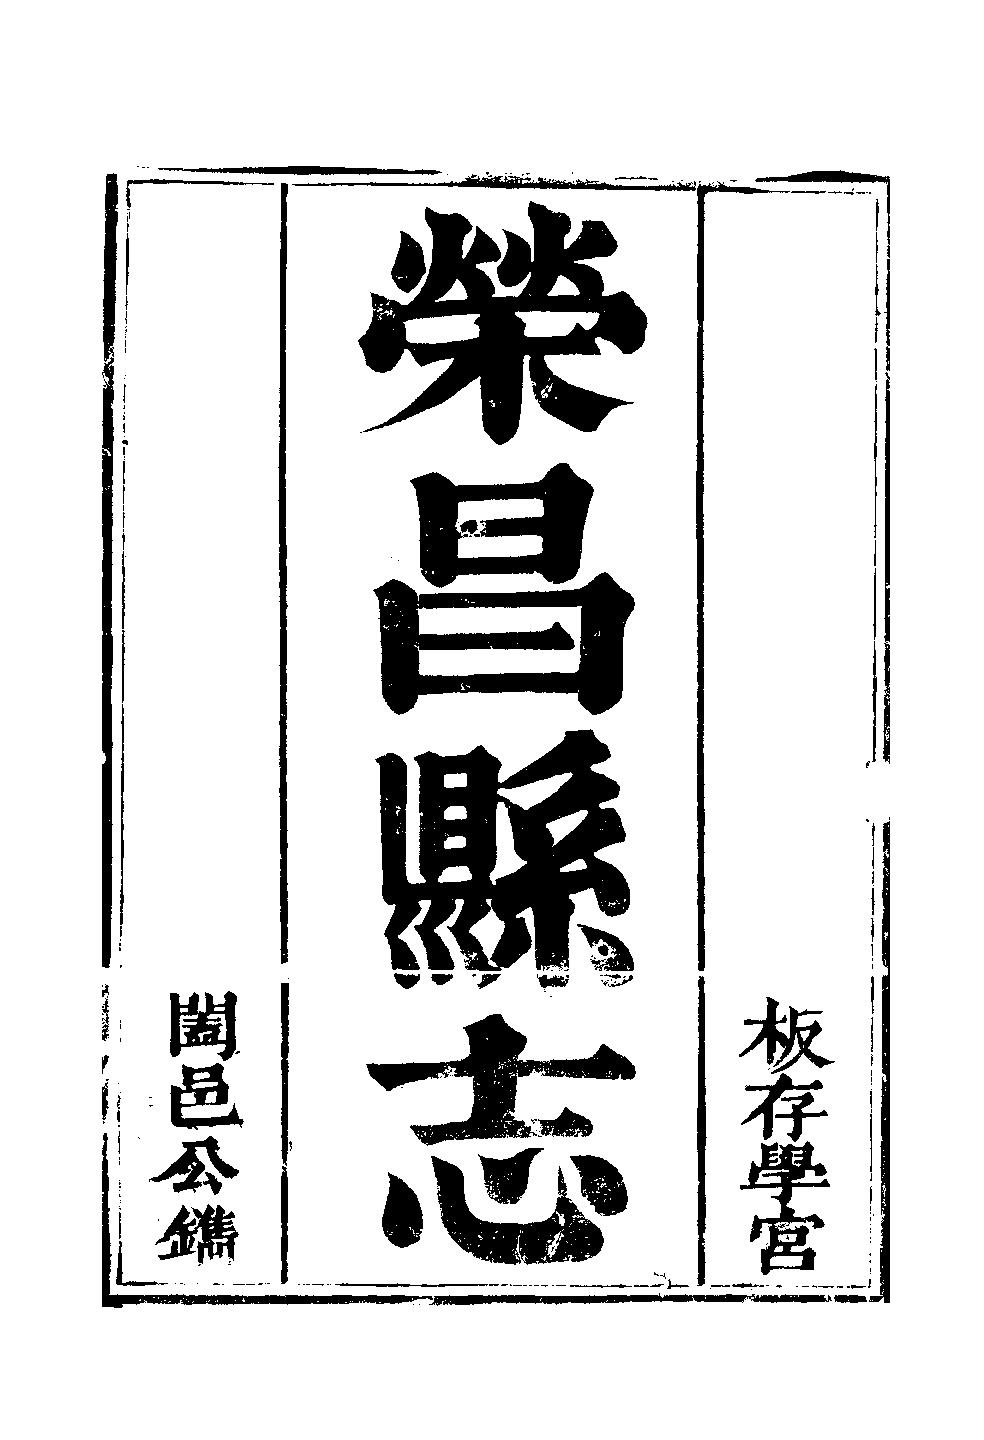 板存學宮
榮昌縣志
闔邑公鐫